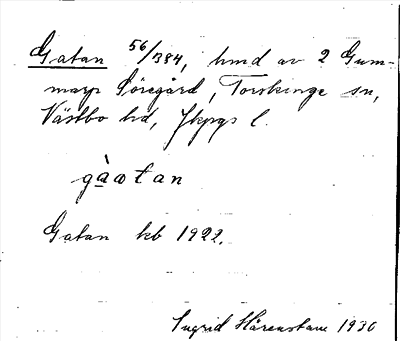 Gatan 56/1384, hmd av 2 Gum-
marp Söregård, Torskinge sn,
Västbo hd, Jkpgs l.
gàωtan
Gatan kb 1922.
Ingrid Härenstam 1930